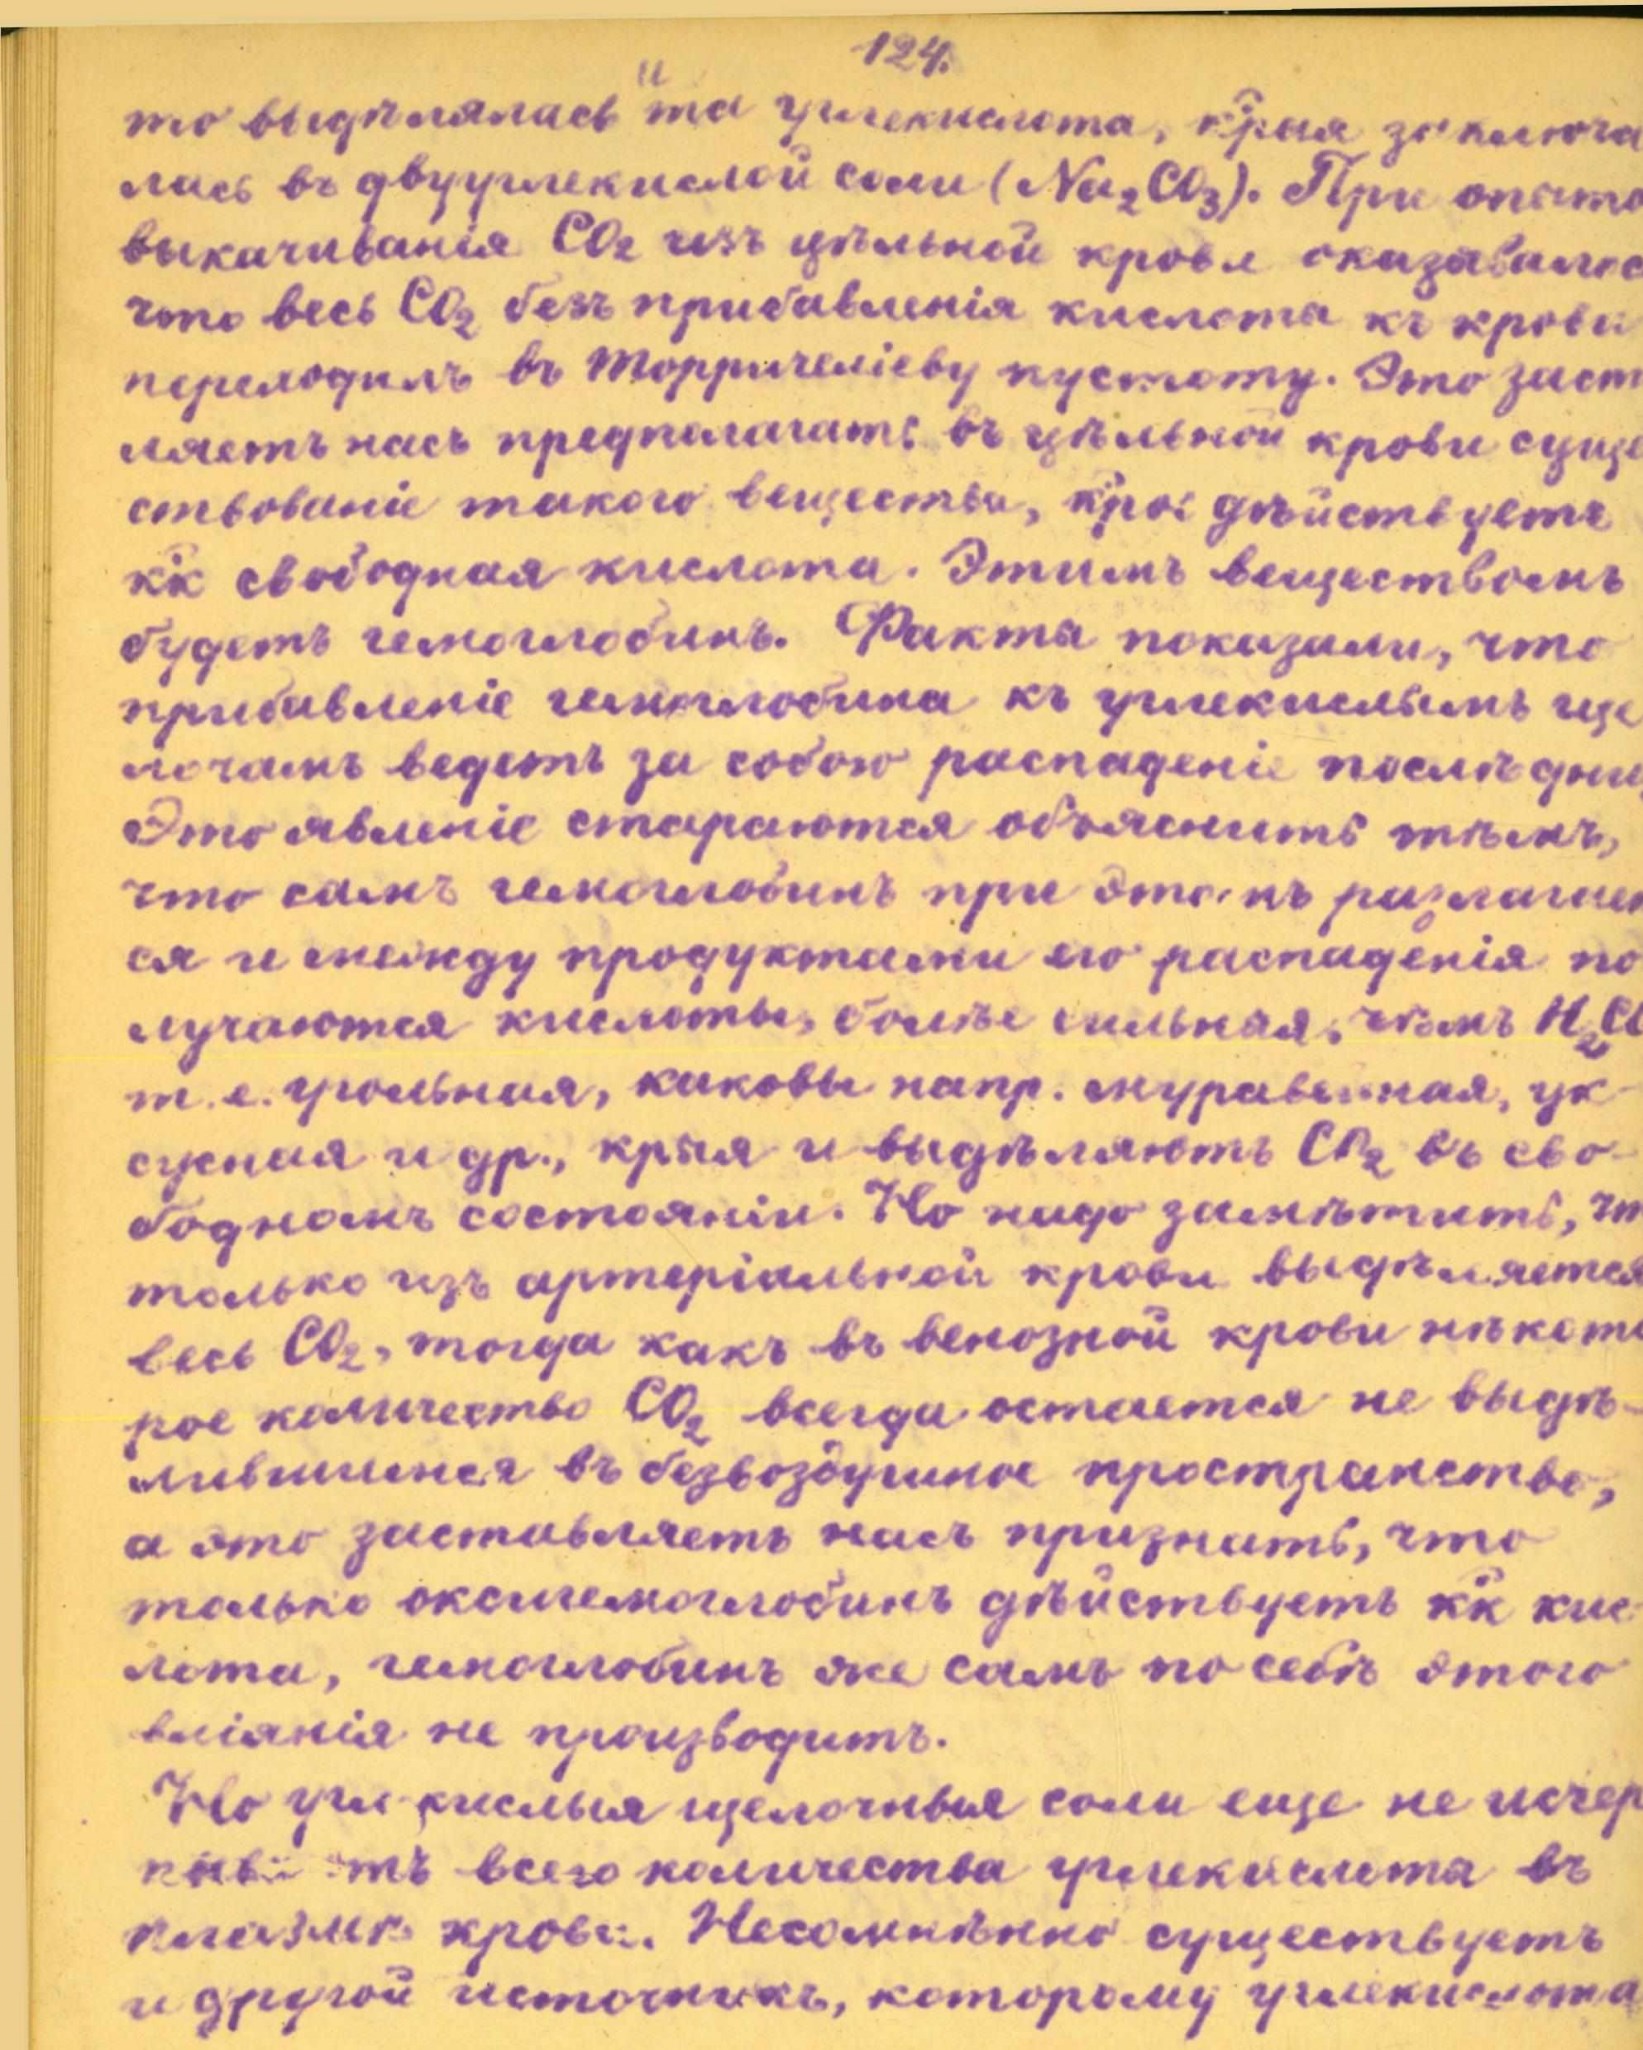 124.
то выдѣлялась и та углекислота, к̃рая заключа
лась въ двууглекислой соли (Na2CO3). При опыто
выкачиванія CO2 изъ цѣльной крови оказывалос
что весь CO2 безъ прибавленія кислоты къ крови
переходилъ въ Торричеліеву пустоту. Это заст
ляетъ насъ предполагать въ цѣльной крови суще
ствованіе такого вещества, к̃рое дѣйствуетъ
к̃к свободная кислота. Этимъ веществомъ
будетъ гемоглобинъ. Факты показали, что
прибавленіе гемоглобина къ углекислымъ ще
лочамъ ведетъ за собою распаденіе послѣдни
Это явленіе стараются объяснить тѣмъ,
что самъ гемоглобинъ при этомъ разлагает
ся и между продуктами его распаденія по
лучаются кислоты, болѣе сильныя, чѣмъ H2CO
т. е. угольная, каковы напр. муравьиная, ук-
сусная и др., к̃рыя и выдѣляютъ CO2 въ сво-
бодномъ состояніи. Но надо замѣтить, чт
только изъ артеріальной крови выдѣляется
весь CO2, тогда какъ въ венозной крови нѣкото
рое количество CO2 всегда остается не выдѣ-
лившимся въ безвоздушное пространство,
а это заставляетъ насъ признать, что
только оксигемоглобинъ дѣйствуетъ к̃к кис-
лота, гемоглобинъ же самъ по себѣ этого
вліянія не производитъ.
Но углекислыя щелочныя соли еще не исчер
всего количества углекислоты въ
плазмѣ крови. Несомнѣнно существуетъ
и другой источникъ, которому углекислота